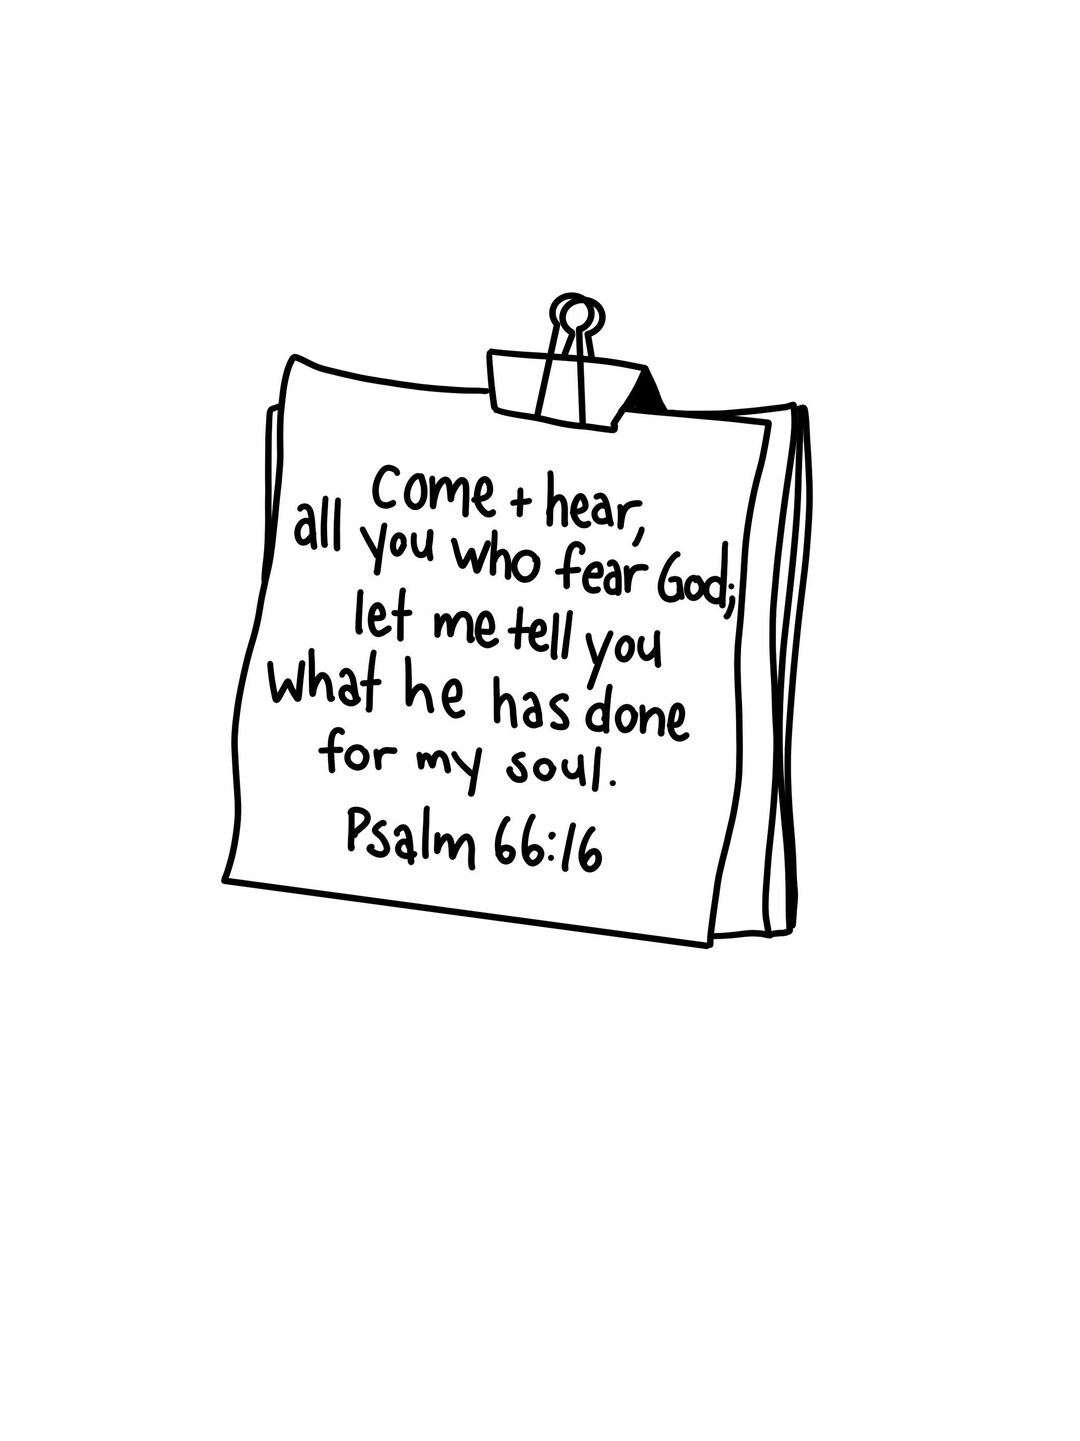 Come + hear,
all you who fear God;
let me tell you
what he has done
for my soul.
Psalm 66:16